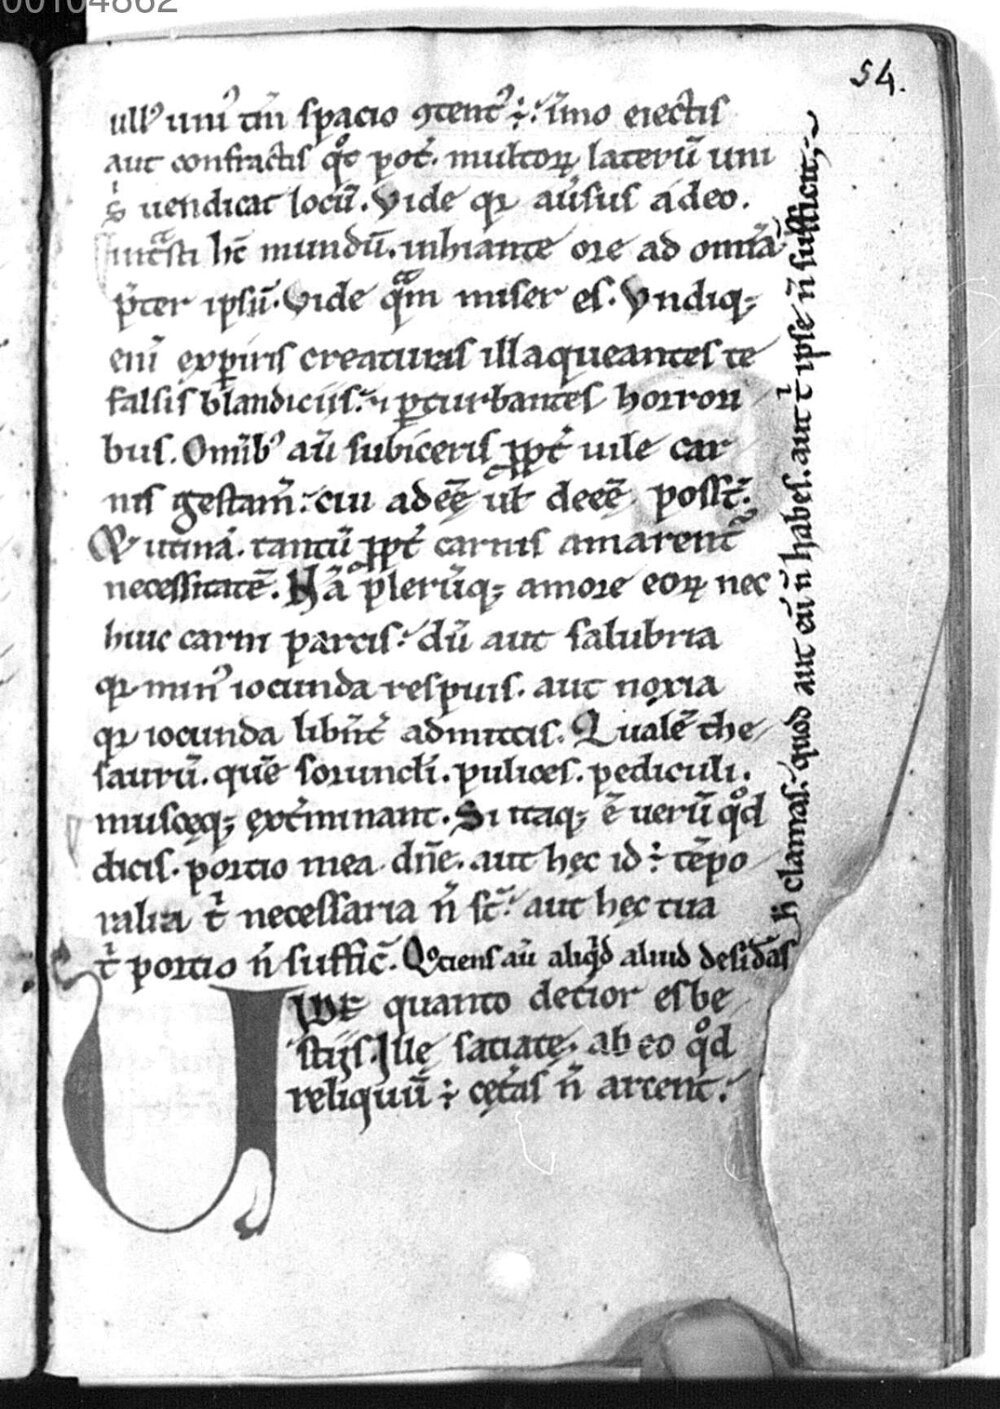 00104862
54.
ull᾽ uni᾽ tm̄ spacio ꝯtent᾽ ÷ īmo eiectis
aut confractis qͦt pot̄. multoꝝ laterū uni
sͥ uendicat locū. Vide qꝛ auͥsus a deo.
hc̄ mundū. inhiante ore ad omīa
p̄ter ipsū. Vide qͣm miser es. Vndiqꝫ
enī exꝑiris creaturas illaqueantes te
falsis blandiciis. ⁊ ꝑturbantes horrori
bus. Omīb᾽ aū subiceris ꝓpt̄ uile car
nis gestam̄. cui adeę̄ ul̄ deeę̄ posst̄.
utinā. tantū ꝓpt̄ carnis amarent᾽
necessitatē. Nā plerūqꝫ amore eoꝝ nec
huic carni parcis. dū aut salubria
qꝛ min᾽ iocunda respuis. aut noxia
qꝛ iocunda libn̄t̄ admittis. Qualē the
saurū. quē soruncli. pulices. pediculi.
muscęqꝫ ext̄minant. Si itaqꝫ ē uerū qͦd
dicis. portio mea dn̄e. aut hęc id ÷ tēpo
ralia tͥ necessaria n̄ st̄. aut hęc tua
tͥ portio n̄ suffic̄. Qͦciens aū aliqͥd aliud desid̄as
h̄ clamas. quod aut eū n̄ habes. aut tͥ ipse n̄ sufficit.
UBI quanto decior es be
stiis. Ille satiate. ab eo qͦd
reliquū ÷ cęt̄as n̄ artent.